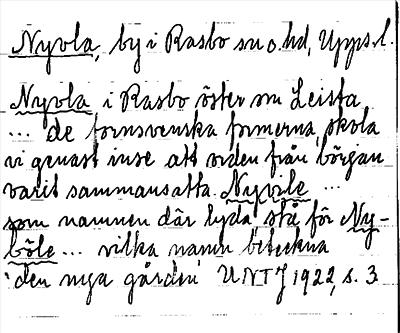 Nyvla, by i Rasbo sn o. hd, Upps. l.
Nyvla i Rasbo öster om Leista
... de fornsvenska formerna, skola
vi genast inse att orden från början
varit sammansatta. Nyvile ...
som namnen där lyda stå för Ny-
böle ... vilka namn beteckna
'den nya gården' UNT 1922, s. 3.